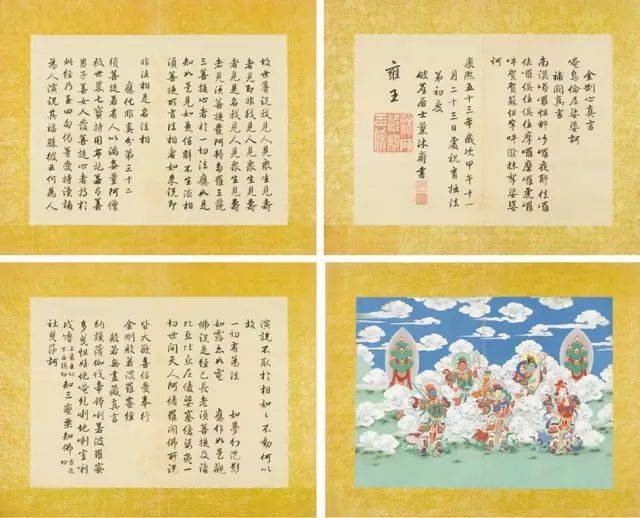 故世尊說我見人見眾生見壽
者見即非我見人見眾生見壽
者見是名我見人見眾生見壽
者見須菩提發阿耨多羅三藐
三菩提心者於一切法應如是
知如是見如是信解不生法相
須菩提所言法相者如來說即
非法相是名法相
應化非真分第三十二
須菩提若有人以滿無量阿僧
祇世界七寶持用布施若有善
男子善女人發菩提心者持於
此經乃至四句偈等受持讀誦
為人演說其福勝彼云何為人
金剛心真言
唵烏倫尼娑婆訶
補闕真言
南謨喝囉怛那哆囉夜耶佉囉
佉囉俱住俱住摩囉摩囉虎囉
吽賀賀蘇怛拏吽潑抹拏娑婆
訶
康熙五十三年歲次甲午十一
月二十三日慶祝育拙法
弟初度
破居士薰沐齋書
雍王
演說不取於相如如不動何以
故
一切有為法 如夢幻泡影
如露亦如電 應作如是觀
佛說是經已長老須菩提及諸
比丘比丘尼優婆塞優婆夷一
切世間天人阿修羅聞佛所說
皆大歡喜信受奉行
金剛般若波羅蜜經
般若無盡藏真言
納謨薄伽伐帝鉢唎若波羅蜜
多曳怛姪他唵紇唎地唎室唎
戍嚕知三蜜栗知佛
社曳莎訶